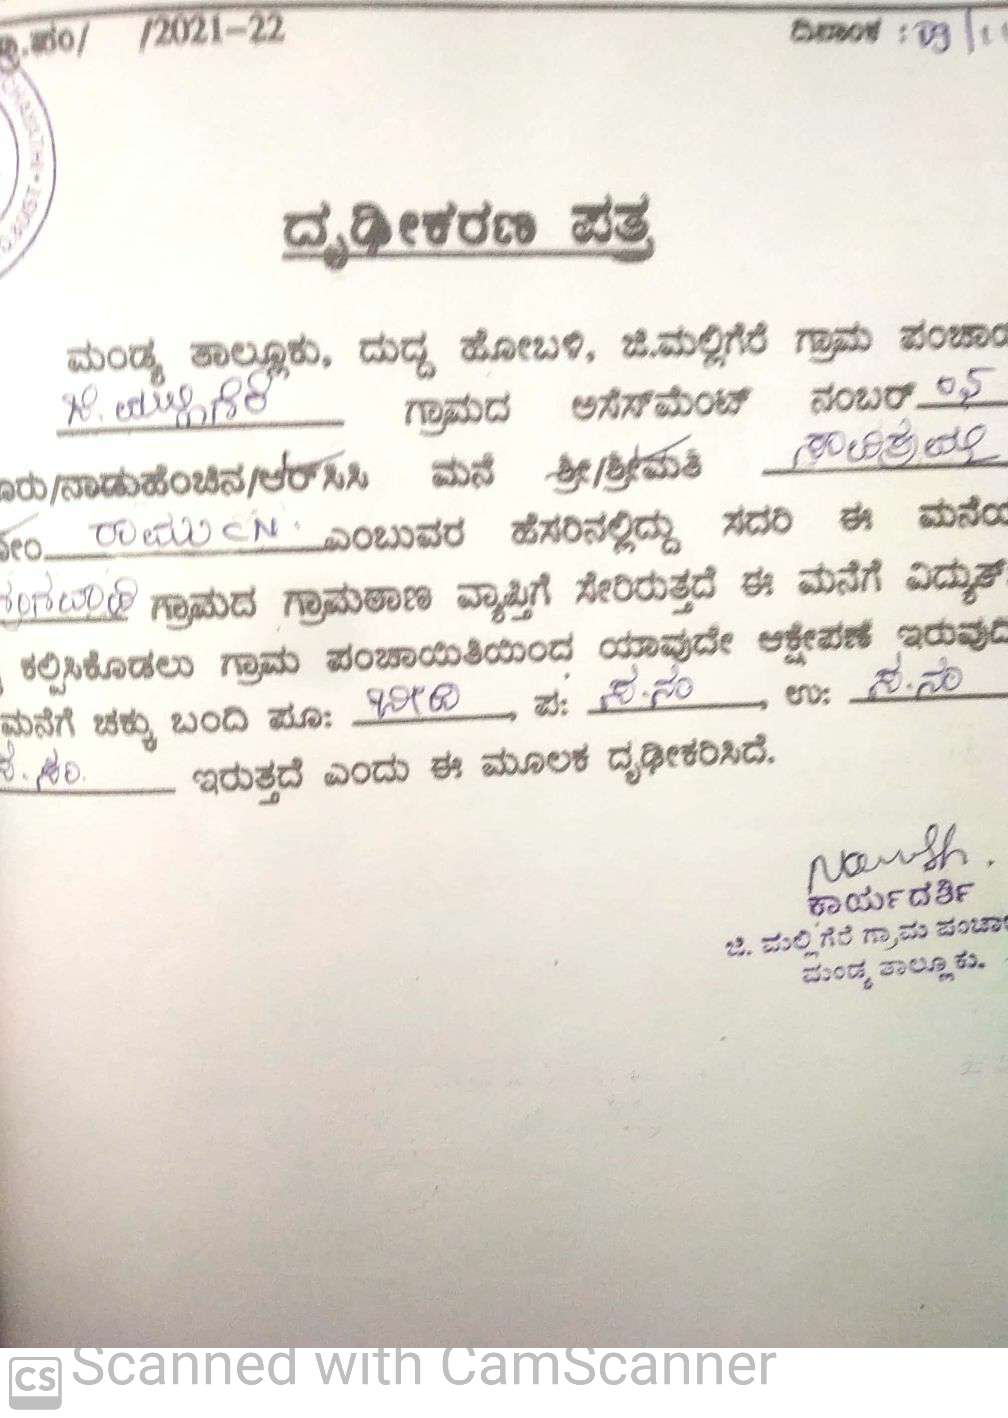 /2021-22 ದಿನಾಂಕ : 09/
ದೃಢೀಕರಣ ಪತ್ರ
ಮಂಡ್ಯ ತಾಲ್ಲೂಕು, ದುದ್ದ ಹೋಬಳಿ, ಜಿ.ಮಲ್ಲಿಗೆರೆ ಗ್ರಾಮ ಪಂಚಾಯ
ಜಿ. ಮಲ್ಲಿಗೆರೆ ಗ್ರಾಮದ ಅಸೆಸ್‌ಮೆಂಟ್ ನಂಬರ್
ೂರು/ನಾಡುಹೆಂಚಿನ/ಆರ್‌ಸಿಸಿ ಮನೆ ಶ್ರೀ/ಶ್ರೀಮತಿ ಸಾವಿತ್ರಮ್ಮ
ಕೋಂ ರಾಮು CN. ಎಂಬುವರ ಹೆಸರಿನಲ್ಲಿದ್ದು ಸದರಿ ಈ ಮನೆಯ
ಗ್ರಾಮದ ಗ್ರಾಮಠಾಣ ವ್ಯಾಪ್ತಿಗೆ ಸೇರಿರುತ್ತದೆ ಈ ಮನೆಗೆ ವಿದ್ಯುತ್
ಕಲ್ಪಿಸಿಕೊಡಲು ಗ್ರಾಮ ಪಂಚಾಯಿತಿಯಿಂದ ಯಾವುದೇ ಆಕ್ಷೇಪಣೆ ಇರುವುದಿ
ಮನೆಗೆ ಚಕ್ಕು ಬಂದಿ ಪೂ: ಬೀದಿ, ಪ: ಸ.ನಂ, ಉ: ಸ.ನಂ
ಇರುತ್ತದೆ ಎಂದು ಈ ಮೂಲಕ ದೃಢೀಕರಿಸಿದೆ.
ಕಾರ್ಯದರ್ಶಿ
ಜಿ. ಮಲ್ಲಿಗೆರೆ ಗ್ರಾಮ ಪಂಚಾ
ಮಂಡ್ಯ ತಾಲ್ಲೂಕು.
CS Scanned with CamScanner